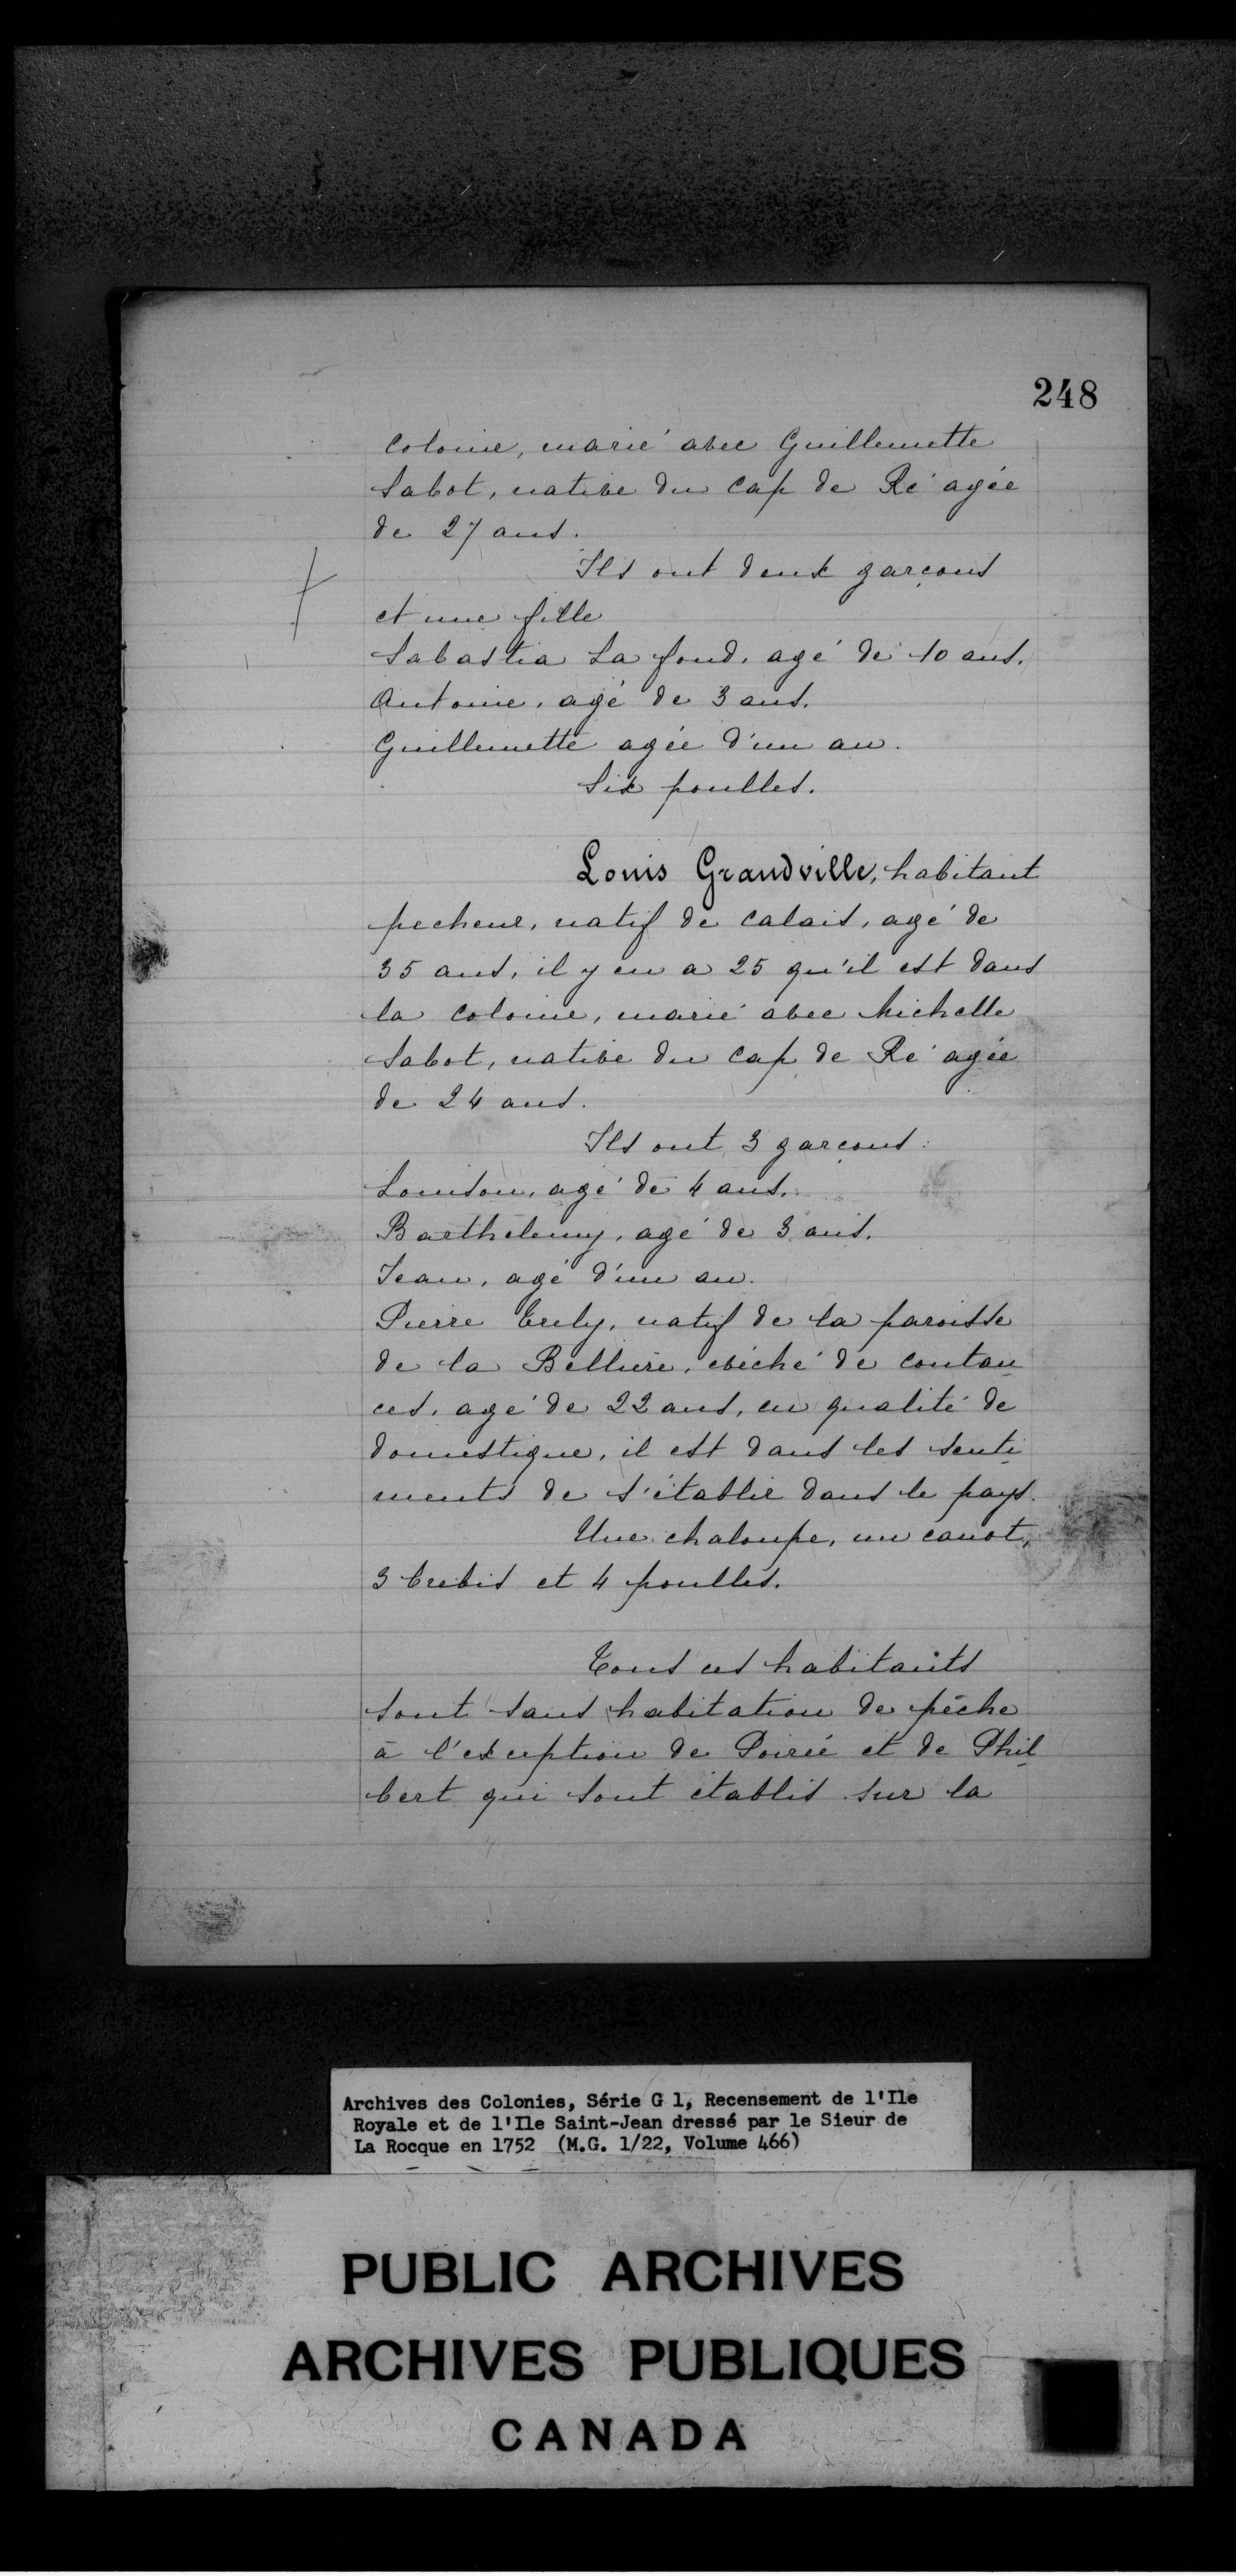 248
colonie, marié avec Guillemette
Sabot, native du cap de Ré agée
de 27 ans.
Ils ont deux garçons
et une fille
Sabastia La fond, agé de 10 ans.
Antoine, agé de 3 ans.
Guillemette agée d'un an.
Six poulles.
Louis Grandville, habitant
pecheur, natif de Calais, agé de
35 ans, il y en a 25 qu'il est dans
la colonie, marié avec Michelle
Sabot, native du cap de Ré agée
de 24 ans.
Ils ont 3 garçons:
Louison, agé de 4 ans.
Barthelemy, agé de 3 ans.
Jean, agé d'un an.
Pierre Trely, natif de la paroisse
de la Belliere, evêché de coutan
ces, agé de 22 ans, en qualité de
domestique, il est dans les senti
ments de s'établir dans le pays.
Une chaloupe, un canot,
3 brebis et 4 poulles.
Tous ces habitants
sont sans habitation de pêche
à l'exception de Poirié et de Phil
bert qui sont établis sur la
Archives des Colonies, Série G 1, Recensement de l'Ile
Royale et de l'Ile Saint-Jean dressé par le Sieur de
La Rocque en 1752 (M.G. 1/22, Volume 466)
PUBLIC ARCHIVES
ARCHIVES PUBLIQUES
CANADA